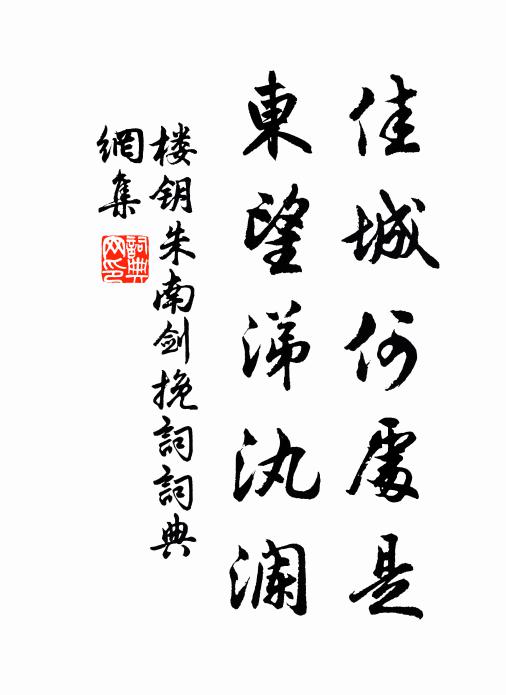 佳城何處是
東望涕汍澜
楼钥朱南剑挽詞詞典
網集
詞典
网印